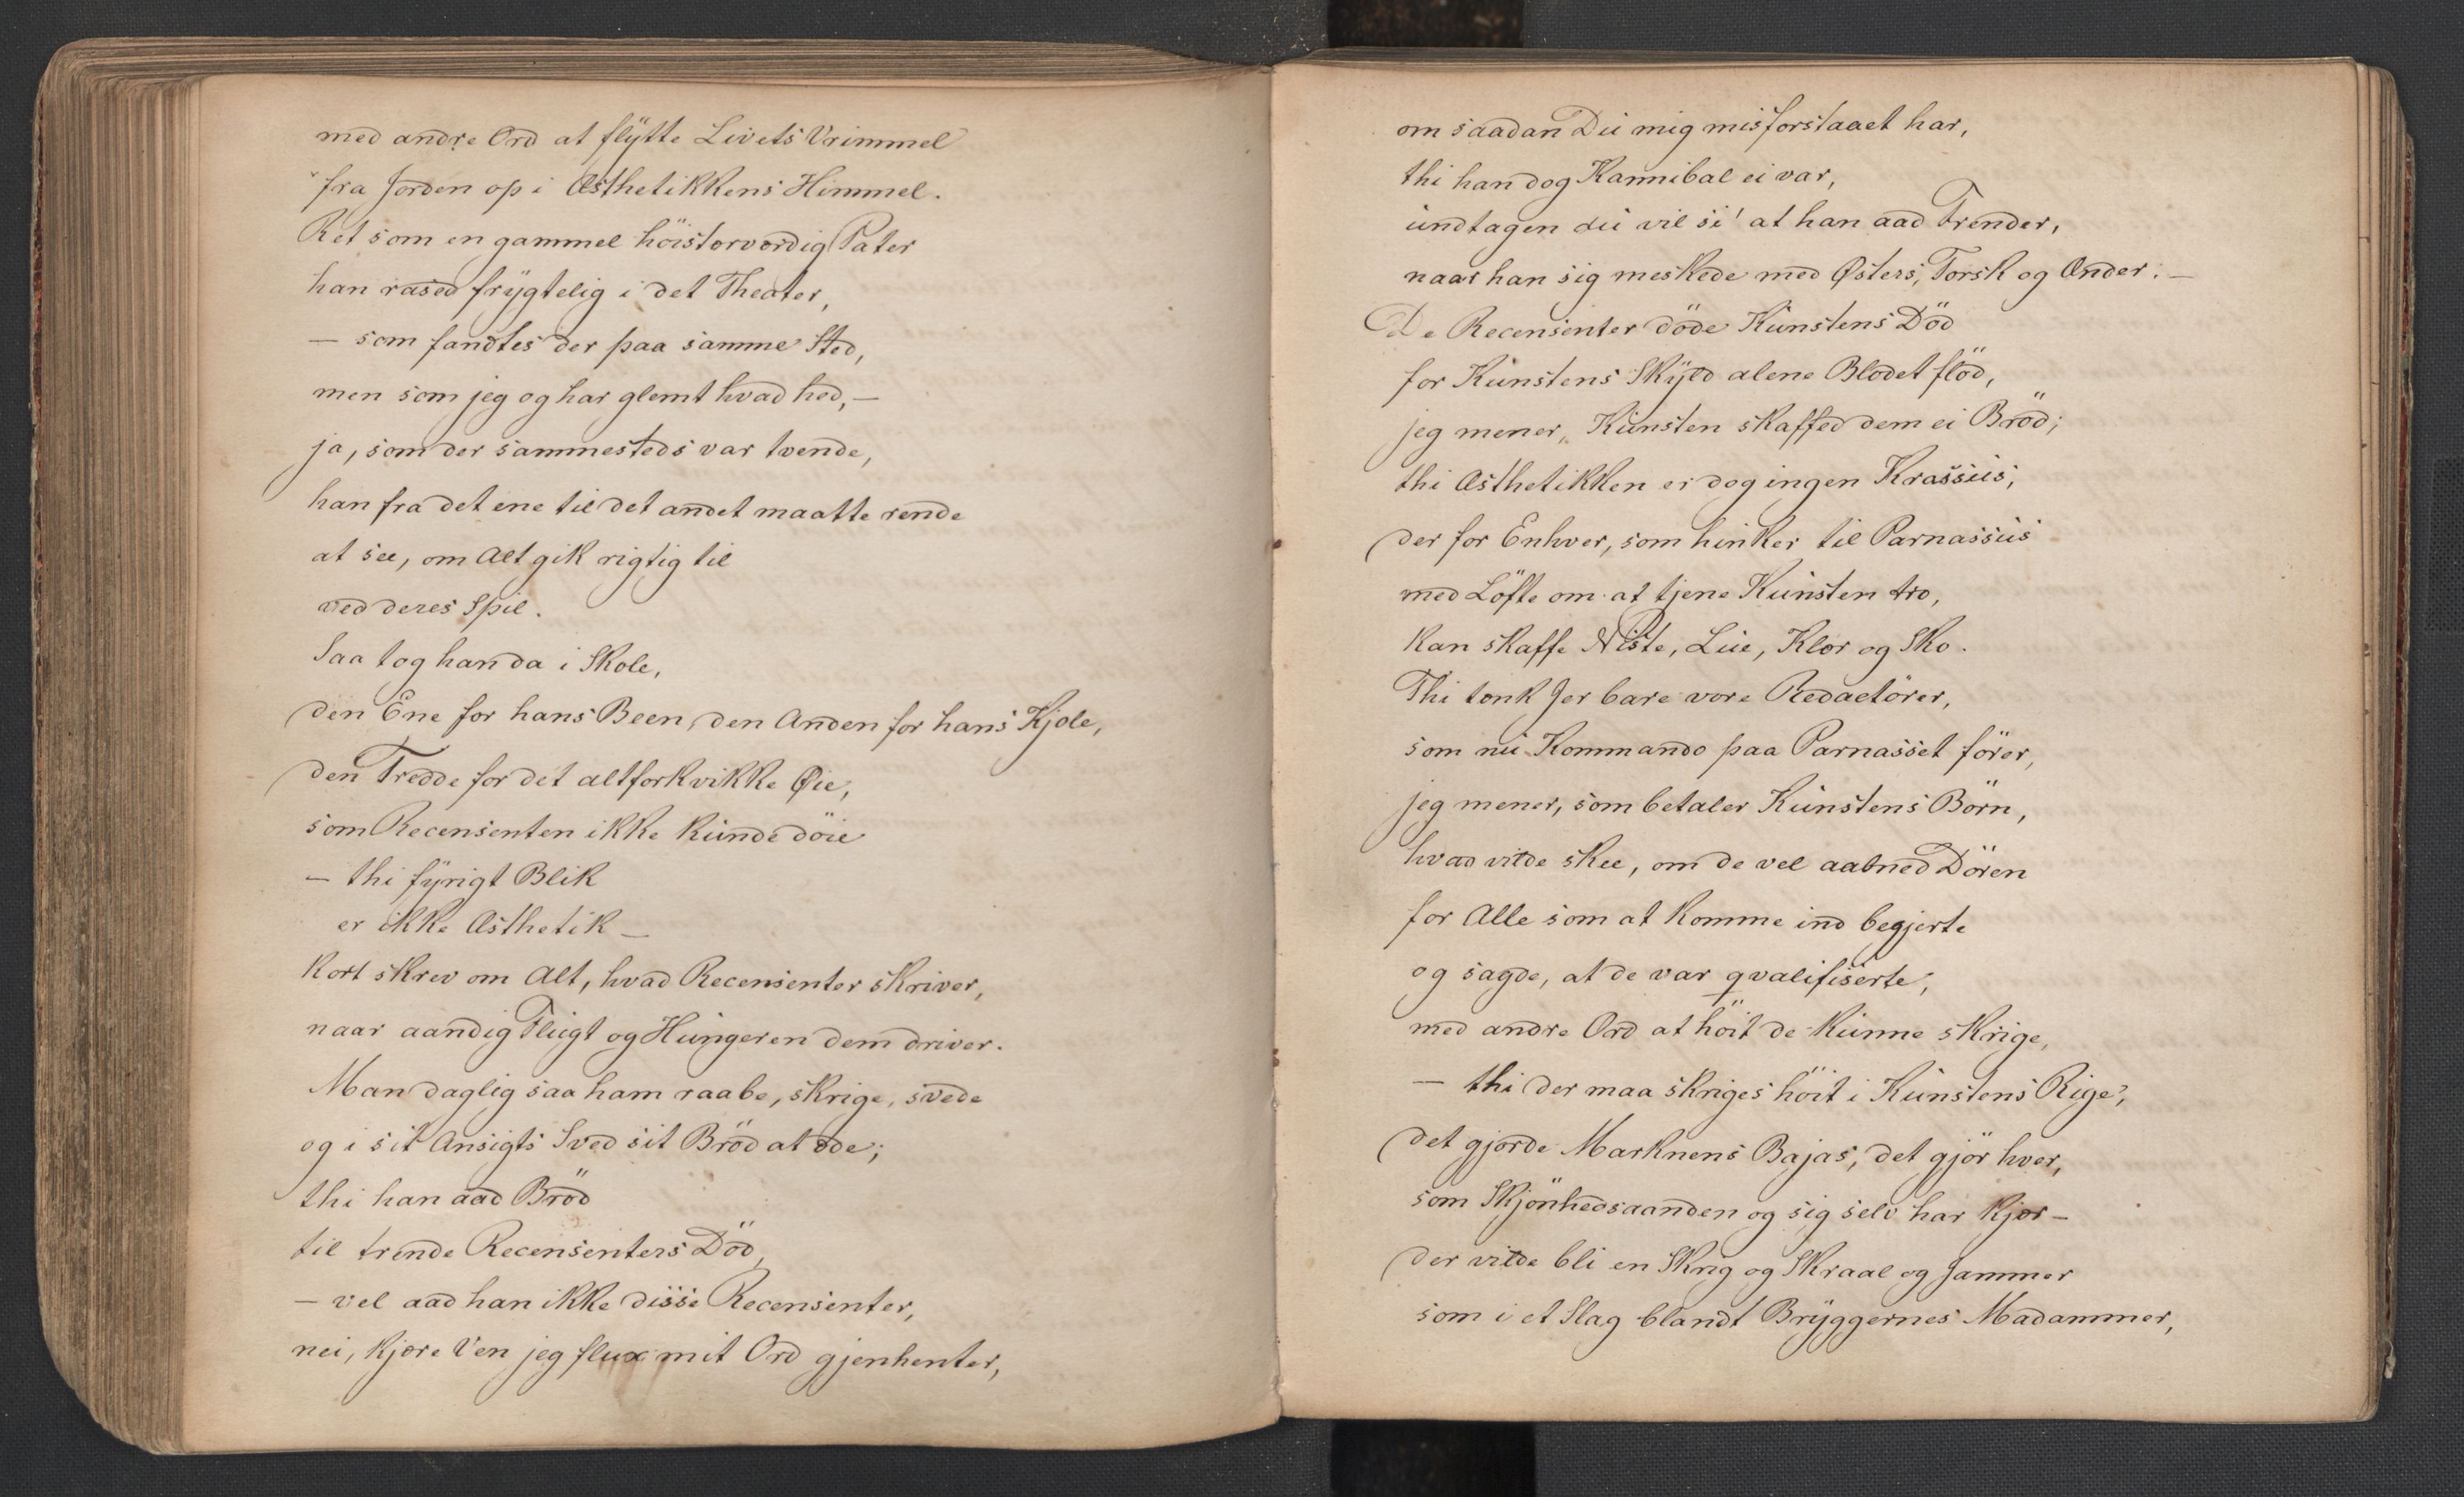 med andre Ord at flÿtte Livets Vrimmel
fra Jorden op i Æsthetikkens Himmel.
Ret som en gammel höistærværdig Pater
han rased frÿgtelig i det Theater,
— som fandtes der paa samme Sted,
men som jeg og har glemt hvad hed, —
ja, som der sammesteds var tvende,
han fra det ene til det andet maatte rende
at see, om Alt gik rigtig til
ved deres Spil.
Saa tog han da i Skole,
den Ene for hans Been, den Anden for hans Kjole,
den Tredde for det altforkvikke Øie,
som Recensenten ikke kunde döie
— thi fÿrigt Blik
er ikke Æsthetik —
kort skrev om Alt, hvad Recensenter skriver,
naar aandig Flugt og Hungeren dem driver.
Man daglig saa ham raabe, skrige, svede
og i sit Ansigts Sved sit Bröd at æde;
thi han aad Bröd
til trende Recensenters Död,
— vel aad han ikke disse Recensenter,
nei, kjære Ven jeg flux mit Ord gjenhenter,
om saadan Du mig misforstaaet har,
thi han dog Kannibal ei var,
undtagen du vil si' at han aad Frender,
naar han sig meskede med Østers, Torsk og Ænder. —
De Recensenter döde Kunstens Död
for Kunstens Skÿld alene Blodet flöd,
jeg mener, Kunsten skaffed dem ei Bröd;
thi Æsthetikken er dog ingen Krassus,
der for Enhver, som hinker til Parnassus
med Löfte om at tjene Kunsten tro,
kan skaffe Niste, Lue, Klær og Sko.
Thi tænk Jer bare vore Redactörer,
som nu Kommando paa Parnasset förer,
jeg mener, som betaler Kunstens Börn,
hvad vilde skee, om de vel aabned Dören
for Alle som at komme ind begjerte
og sagde, at de var qvalifiserte,
med andre Ord at höit de kunne skrige,
— thi der maa skriges höit i Kunstens Rige,
det gjorde Marknens Bajas, det gjör hver,
som Skjönhedsaanden og sig selv har kjær —
der vilde bli en Skrig og Skraal og Jammer
som i et Slag blandt Brÿggernes Madammer,